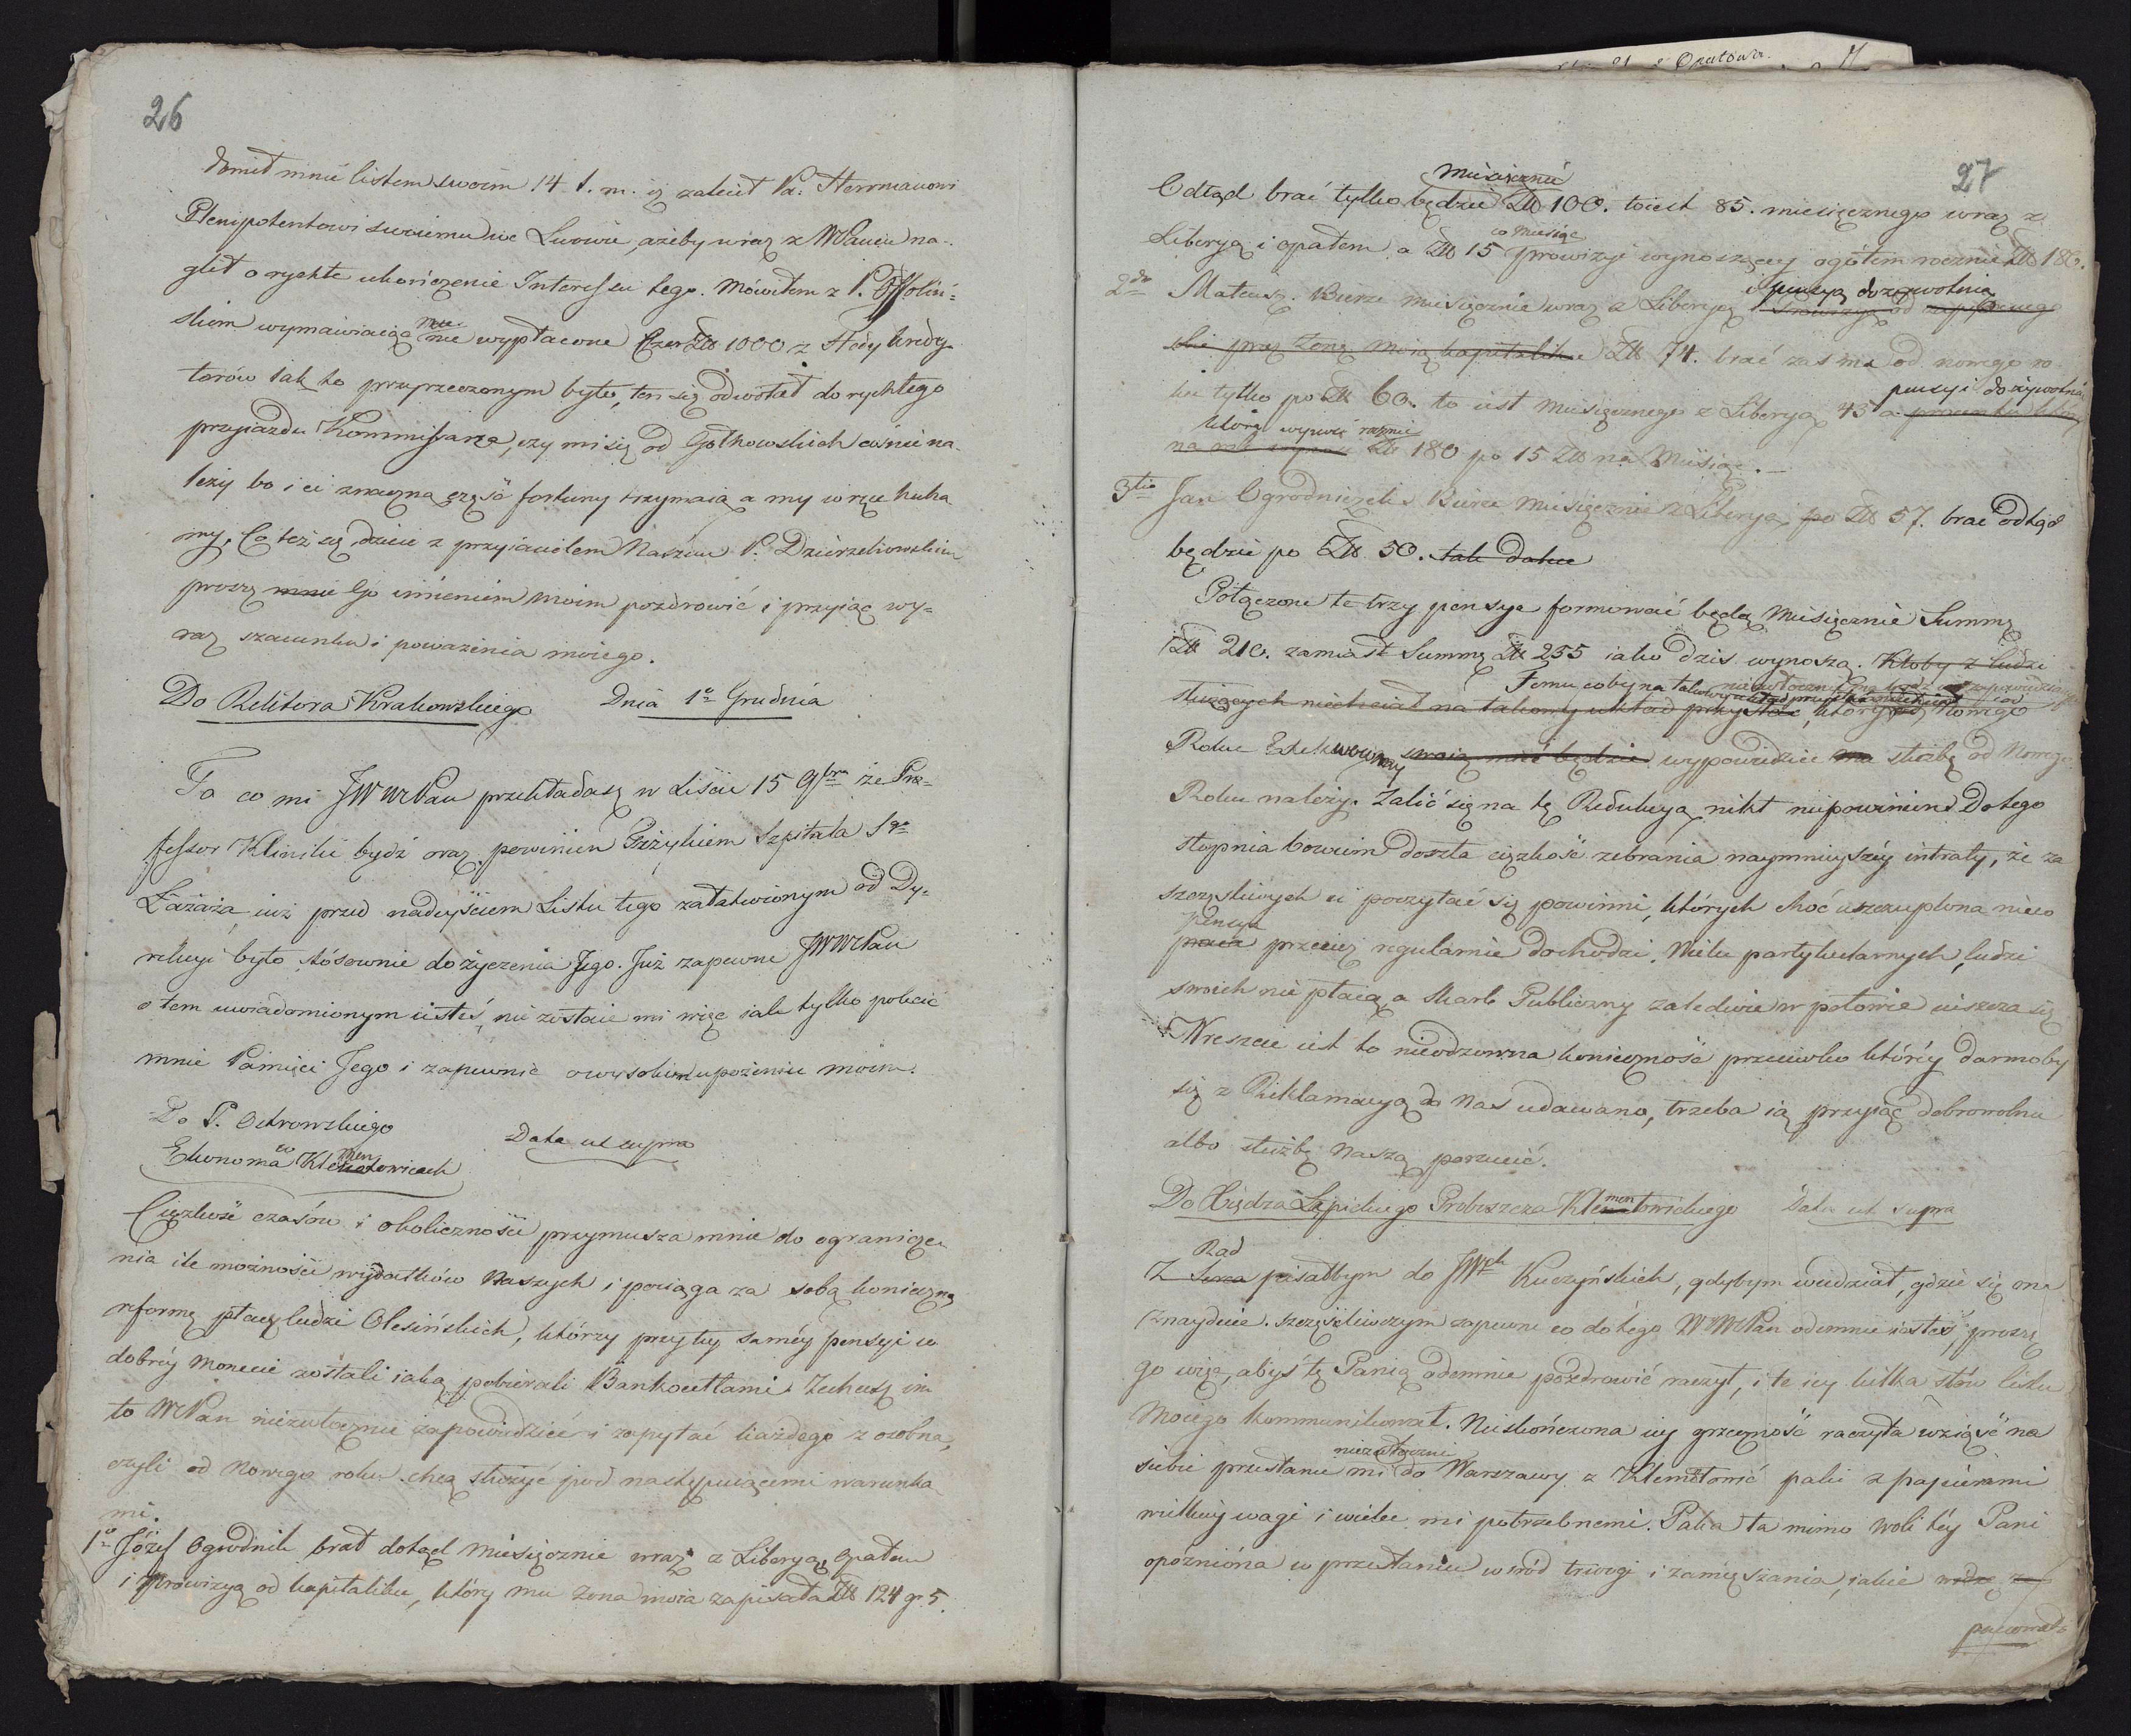 26
domił mnie listem swoim 14 t. m. iż zalecił Pa: Herrmanowi
Plenipotentowi swoiemu we Lwowie, ażeby wraz z WPanem na-
glił o rychłe ukończenie Interessu tego. Mówiłem z P. Ossoliń-
skim wymawiaiąc nie wypłacone Czer Zło 1000 z Schedy Kredy-
torów iak to przyrzeczonym było, ten się odwołał do rychłego
przyiazdu Kommissarza, czy mi się od Gołkowskich co nie na-
leży bo i ci znaczną część fortuny trzymaią a my w ręce huka
my. Co też się dzieie z przyiacielem Naszem P. Dzierzkowskim
proszę mnie Go imieniem moim pozdrowić i przyiąć wy-
raz szacunku i poważenia moiego.
Do Rektora Krakowskiego Dnia 1o Grudnia
To co mi JWWPan przekładasz w Liście 15 9bra że Pro-
fessor Kliniki bydź oraz powinien Fizykiem Szpitala Sgo
Łazaża iuż przed nadeyściem Listu tego załatwionym od Dy-
rekcyi było stósownie do życzenia Jego. Już zapewne JWWPan
o tem uwiadomionym iesteś, nie zostaie mi więc iak tylko polecić
mnie Pamięci Jego i zapewnić o wysokim upożeniu moim.
Do P. Ostrowskiego
Ekonoma w Klementowicach Data ut supra
Ciężkość czasów i okoliczności przymusza mnie do ogranicze-
nia ile możności wydatków Naszych i pociąga za sobą konieczną
reformę płacy ludzi Olesińskich, którzy przy tey saméy pensyi w
dobréy monecie zostali iaką pobierali Bankocetlami. Zechcesz im
to WPan niezwłocznie zapowiedzieć i zapytać każdego z osobna,
czyli od Nowego roku chcą służyć pod następuiącemi warunka
mi.
1o Józef Ogrodnik brał dotąd miesięcznie wraz z Liberyą, opałem
i prowizyą od kapitaliku, który mu Zona moia zapisała Zło 124 gr 5.
27
miesięcznie
Odtąd brać tylko będzie Zło 100. toiest 85. miesięcznego wraz z
co miesiąc
Liberyą i opałem a Zło 15 prowizyi wynoszącey ogółem rocznie Zło 180.
i pensyą dożywotnią
2do Mateusz. Bierze miesięcznie wraz z Liberyą i Prowizyą od zapisanego
kie przez Zonę moią kapitaliku Zło 74. brać zaś ma od nowego ro-
pensyi dożywotniéy
ku tylko po Zło 60. to iest miesięcznego z Liberyą 45 a
którą wynosi rocznie
Zło 180 po 15 Zło na Miesiąc.
3tio Jan Ogrodniczek Bierze miesięcznie z Liberyą po Zło 57. brać odtąd
będzie po Zło 50. tak dalece
Połączone te trzy pensye formować będą miesięcznie Summę
Zło 210. zamiast Summy Zło 255 iako dziś wynoszą. Ktoby z ludzi
Temu coby na takowy układ przystać niechciał
służących niechciał na takowy układ przystać, który od Nowego
Roku Exekwowany swoią mieć będzie wypowiedzieć ma służbę od Nowego
Roku należy. Zalić się na tę Redukcyą nikt niepowinien. Do tego
stopnia bowiem doszła ciężkość zebrania naymnieyszéy intraty, że za
szczęśliwych ci poczytać się powinni, których choć uszczuplona nieco
pensya
płaca przecież regularnie dochodzi. Wielu partykularnych, ludzi
swoich nie płacą, a Skarb Publiczny zaledwie w połowie uiszcza się
Wreszcie iest to nieodzowna konieczność przeciwko któréy darmoby
się z Reklamacyą do Nas udawano, trzeba ią przyiąć dobrowolnie
albo służbę Naszą porzucić.
Do Xiędza Łępickiego Proboszcza Klementowickiego Data ut supra
Rad
Z Serca pisałbym do JWéy Kuczyńskich, gdybym wiedział, gdzie się ona
znayduie. szczęśliwszym zapewne co do tego WWPan odemnie iesteś, proszę
go więc, abyś tę Panią odemnie pozdrowić raczył, i te iey kilka słów listu
Moiego kommunikował. Nieskończona iey grzeczność raczyła wziąść na
niezwłocznie
siebie przesłanie mi do Warszawy z Klemętowic paki z papierami
wielkiéy wagi i wielce mi potrzebnemi. Paka ta mimo woli téy Pani
opóźniona w przesłaniu w śród trwogi i zamięszania, iakie
panowało